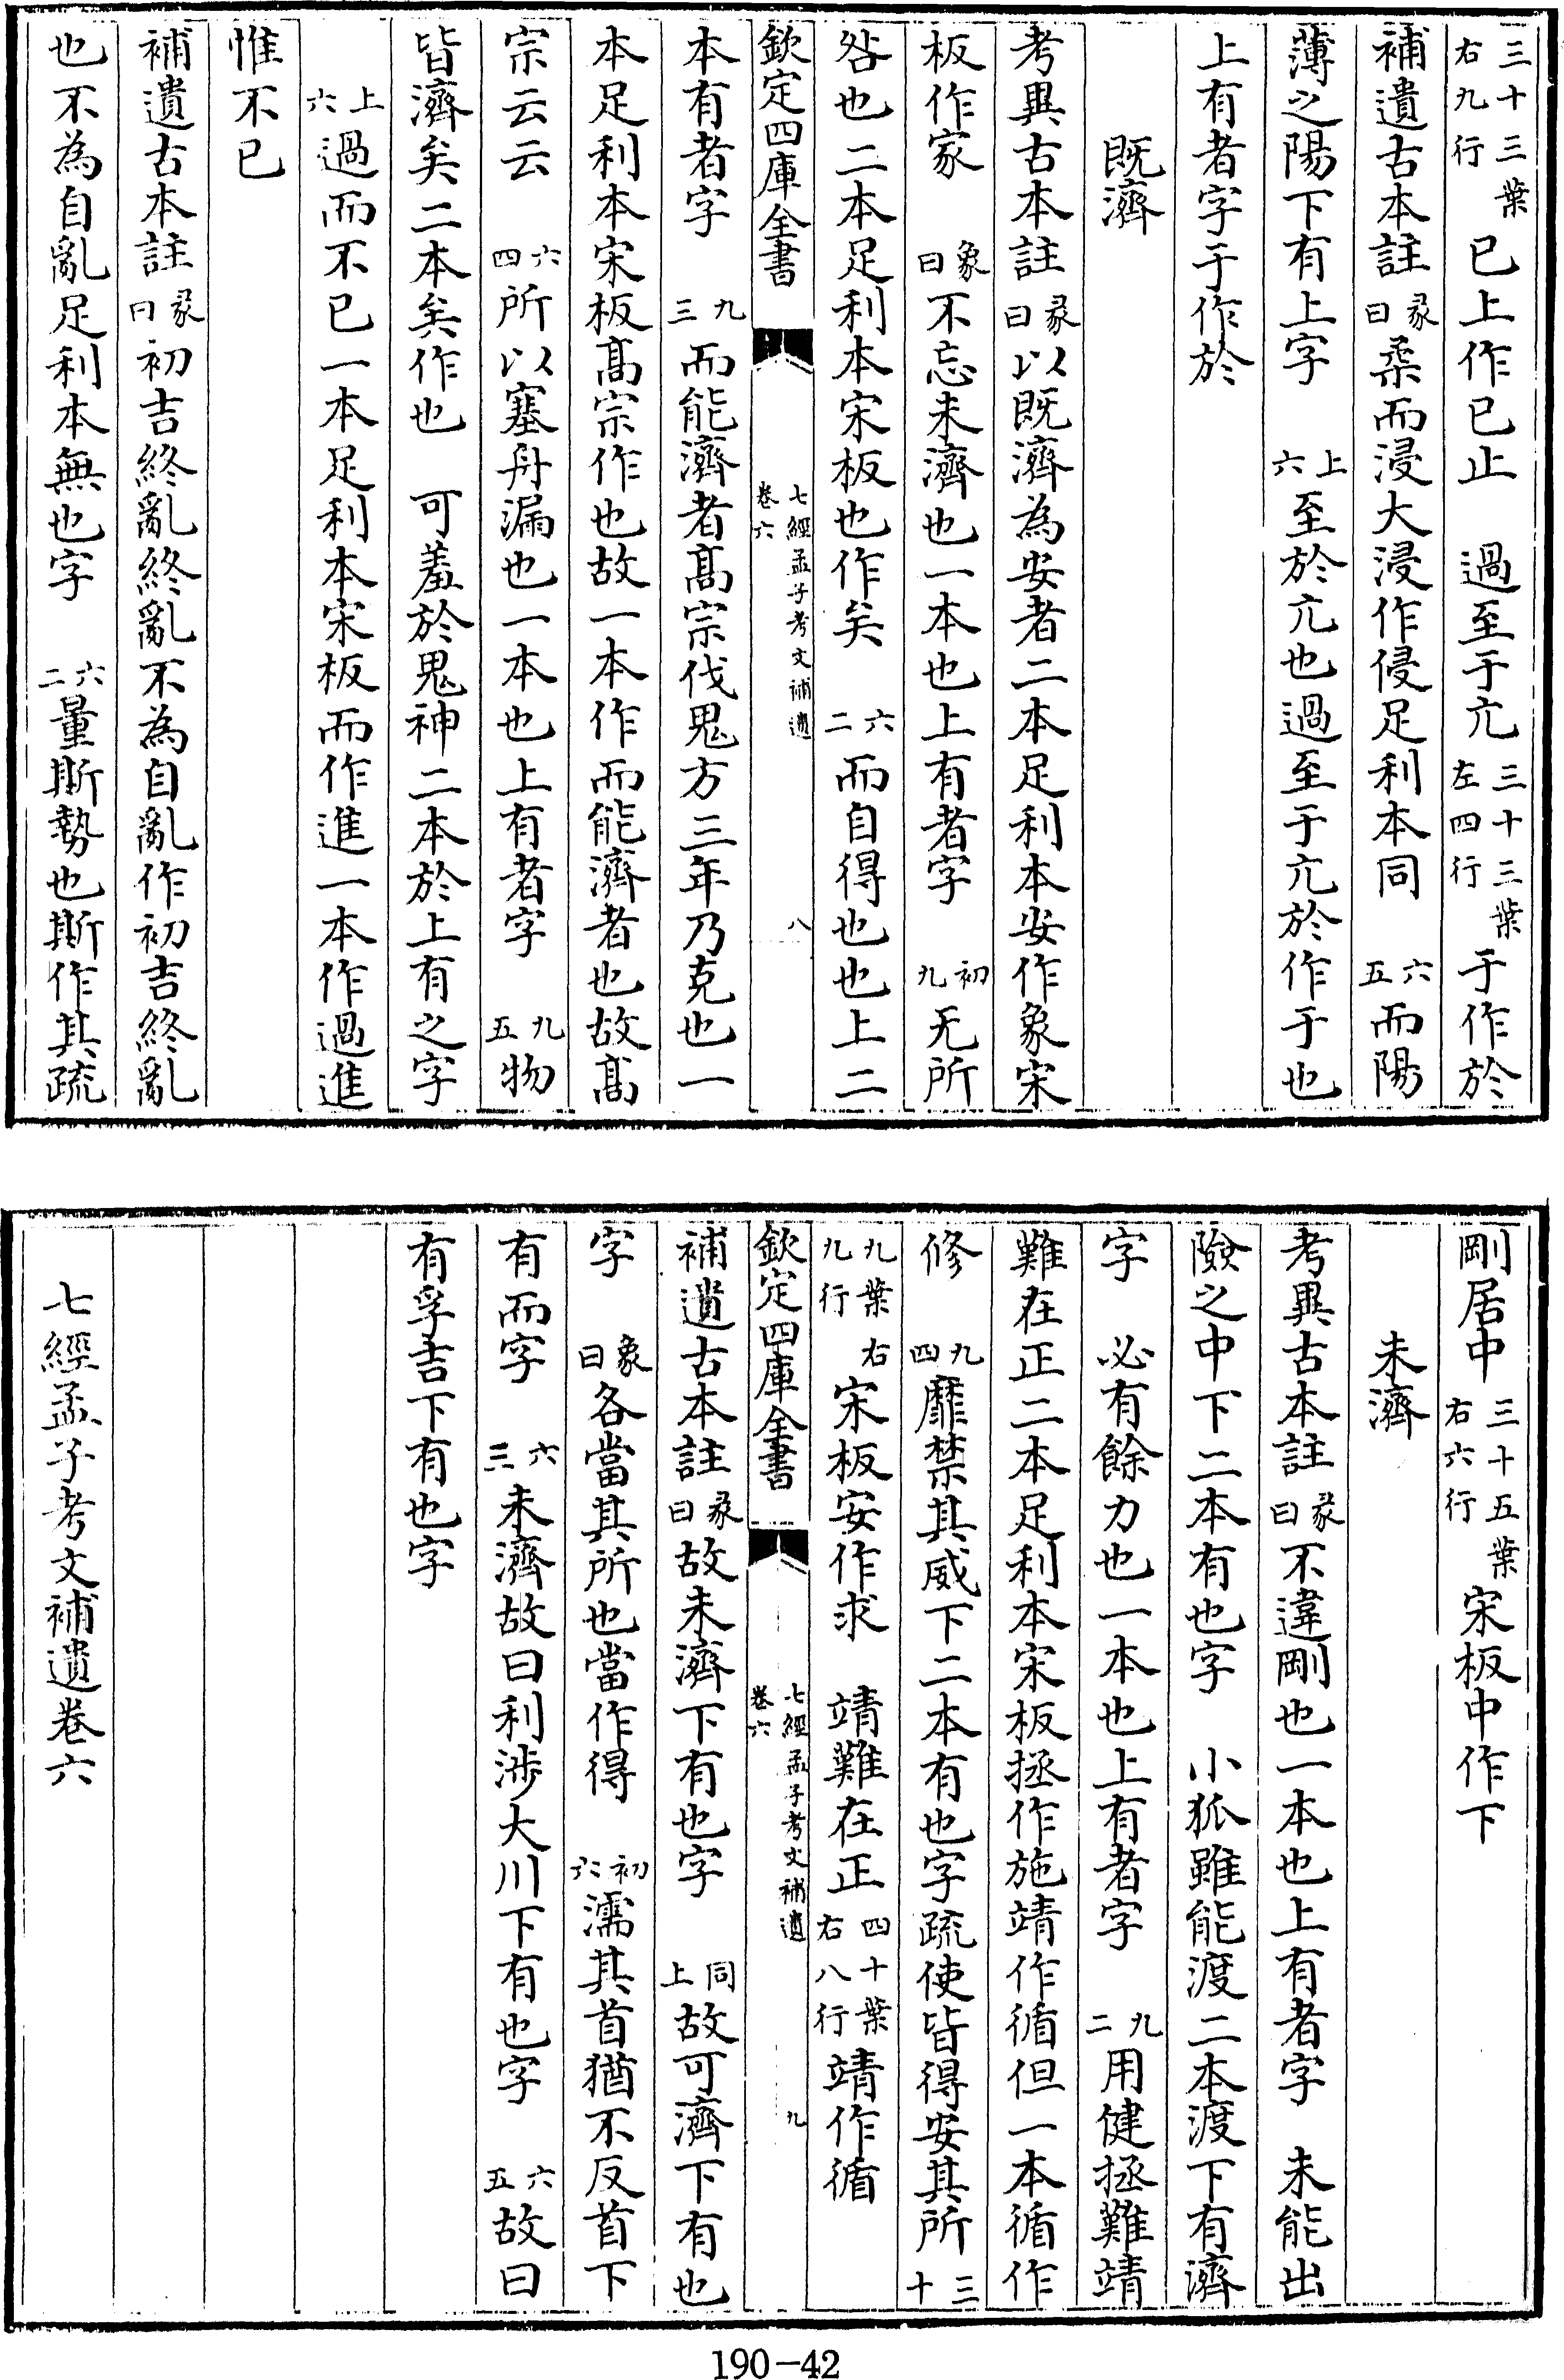 三十三葉右九行已上作已止　過至于亢三十三葉左四行于作於
補遺古本註彖曰柔而浸大浸作侵足利本同　六五而陽
薄之陽下有上字　上六至於亢也過至于亢於作于也
上有者字于作於
既濟
考異古本註彖曰以既濟為安者二本足利本安作象宋
板作家　象曰不忘未濟也一本也上有者字　初九无所
咎也二本足利本宋板也作矣　六二而自得也也上二
欽定四庫全書　七經孟子考文補遺卷六　八
本有者字　九三而能濟者髙宗伐鬼方三年乃克也一
本足利本宋板髙宗作也故一本作而能濟者也故髙
宗云云　六四所以塞舟漏也一本也上有者字　九五物
皆濟矣二本矣作也　可羞於鬼神二本於上有之字
上六過而不已一本足利本宋板而作進一本作過進
惟不已
補遺古本註彖曰初吉終亂終亂不為自亂作初吉終亂
也不為自亂足利本無也字　六二量斯勢也斯作其疏
剛居中三十五葉右六行宋板中作下
未濟
考異古本註彖曰不違剛也一本也上有者字　未能出
險之中下二本有也字　小狐雖能渡二本渡下有濟
字　必有餘力也一本也上有者字　九二用健拯難靖
難在正二本足利本宋板拯作施靖作循但一本循作
修　九四靡禁其威下二本有也字疏使皆得安其所三十
九葉右九行宋板安作求　靖難在正四十葉右八行靖作循
欽定四庫全書　七經孟子考文補遺卷六　九
補遺古本註彖曰故未濟下有也字　同上故可濟下有也
字　象曰各當其所也當作得　初六濡其首猶不反首下
有而字　六三未濟故曰利涉大川下有也字　六五故曰
有孚吉下有也字
七經孟子考文補遺卷六
190-42